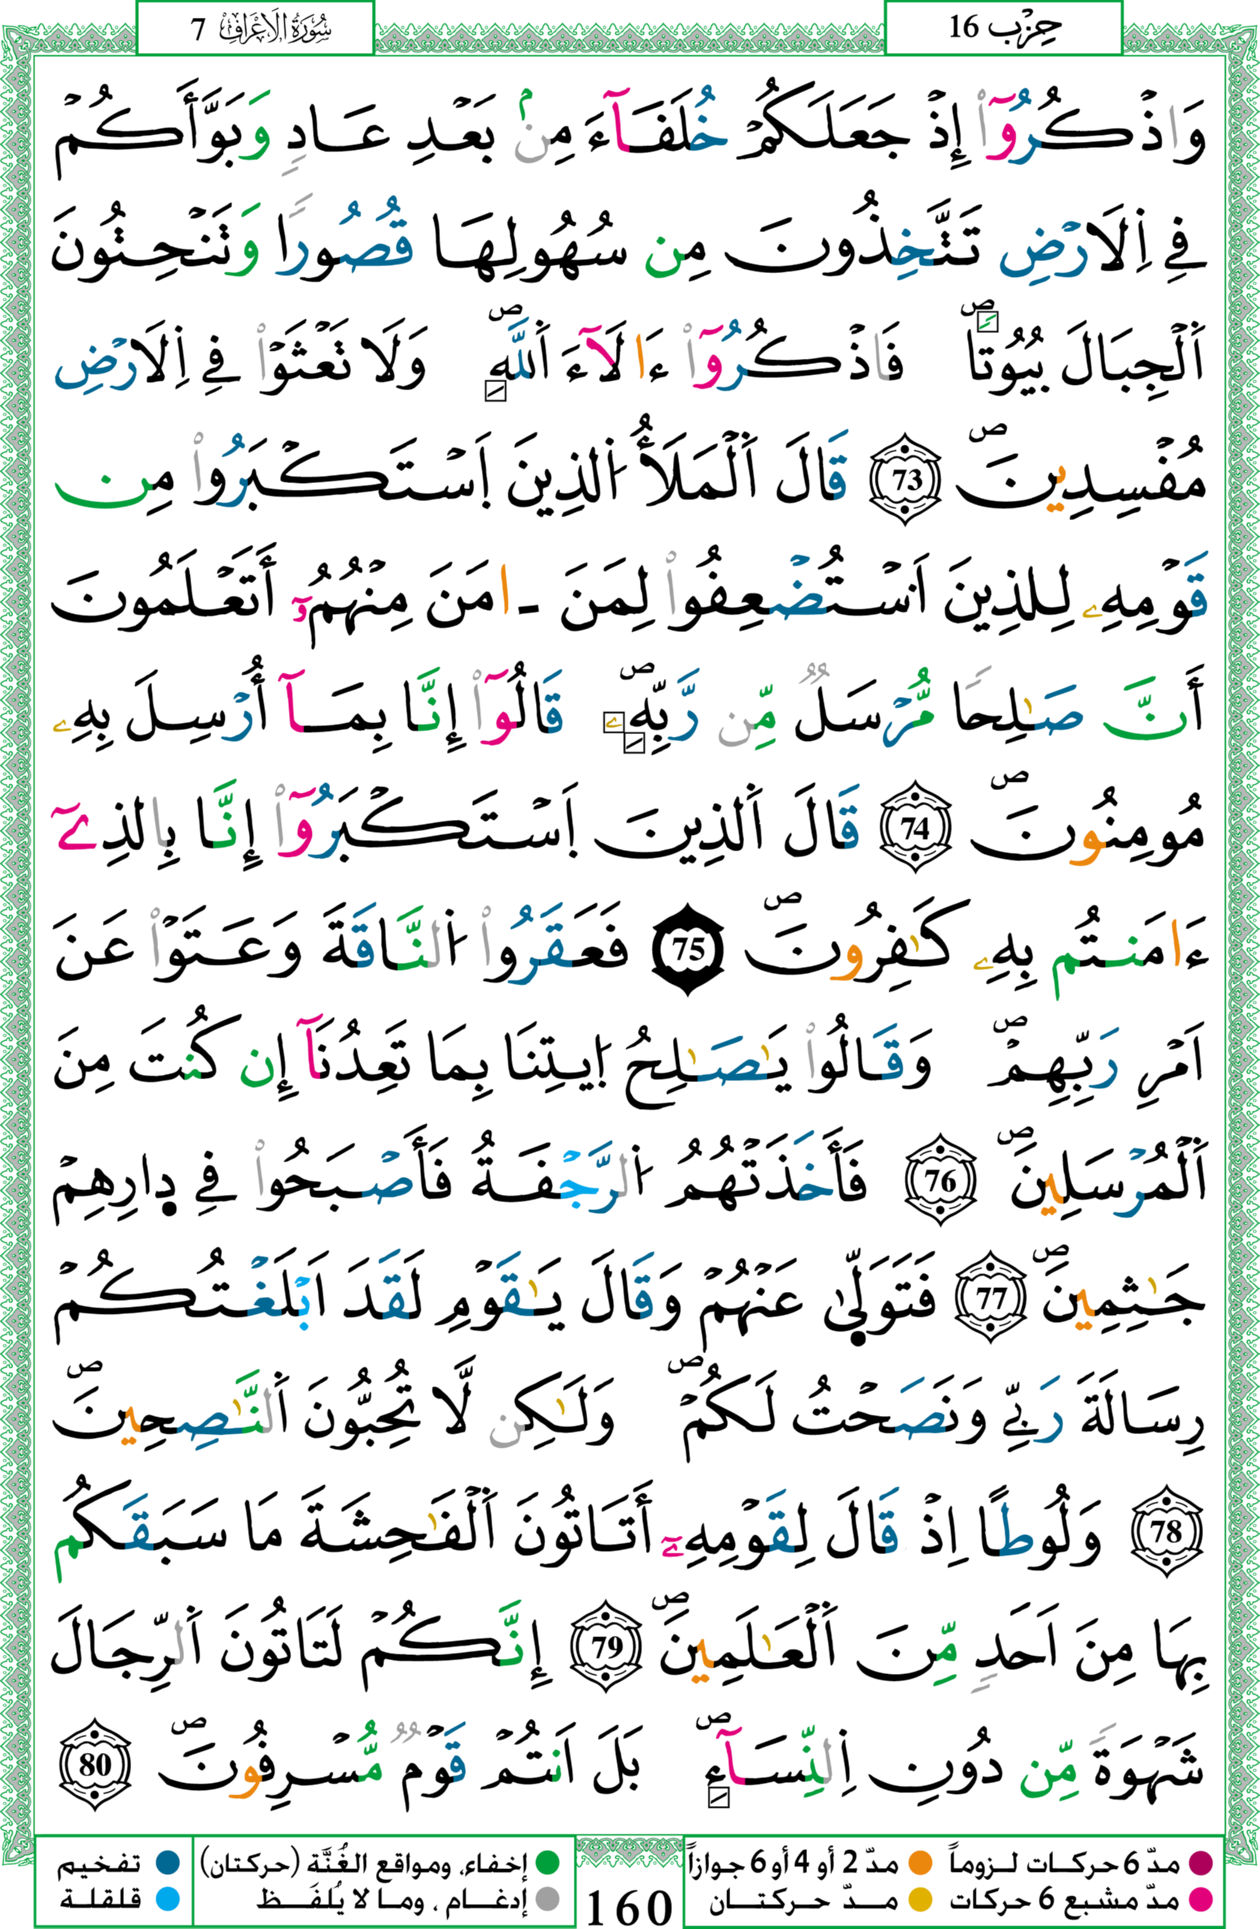 حِزْب 16
سُورَةُ الَاعْرَافِ 7
وَاذْكُرُوٓاْ إِذْ جَعَلَكُمْ خُلَفَآءَ مِنۢ بَعْدِ عَادٖ وَبَوَّأَكُمْ
فِے اِ۬لَارْضِ تَتَّخِذُونَ مِن سُهُولِهَا قُصُوراٗ وَتَنْحِتُونَ
اَ۬لْجِبَالَ بُيُوتاٗۖ فَاذْكُرُوٓاْ ءَالَآءَ اَ۬للَّهِۖ وَلَا تَعْثَوْاْ فِے اِ۬لَارْضِ
مُفْسِدِينَۖ 73 قَالَ اَ۬لْمَلَأُ اُ۬لذِينَ اَ۪سْتَكْبَرُواْ مِن
قَوْمِهِۦ لِلذِينَ اَ۟سْتُضْعِفُواْ لِمَنَ اٰمَنَ مِنْهُمُۥٓ أَتَعْلَمُونَ
أَنَّ صَٰلِحاٗ مُّرْسَلٞ مِّن رَّبِّهِۦۖ قَالُوٓاْ إِنَّا بِمَآ أُرْسِلَ بِهِۦ
مُومِنُونَۖ 74 قَالَ اَ۬لذِينَ اَ۪سْتَكْبَرُوٓاْ إِنَّا بِالذِےٓ
ءَامَنتُم بِهِۦ كَٰفِرُونَۖ 75 فَعَقَرُواْ اُ۬لنَّاقَةَ وَعَتَوْاْ عَنَ
اَمْرِ رَبِّهِمْۖ وَقَالُواْ يَٰصَٰلِحُ اُ۪يتِنَا بِمَا تَعِدُنَآ إِن كُنتَ مِنَ
اَ۬لْمُرْسَلِينَۖ 76 فَأَخَذَتْهُمُ اُ۬لرَّجْفَةُ فَأَصْبَحُواْ فِے د۪ارِهِمْ
جَٰثِمِينَۖ 77 فَتَوَلّ۪يٰ عَنْهُمْ وَقَالَ يَٰقَوْمِ لَقَدَ اَبْلَغْتُكُمْ
رِسَالَةَ رَبِّے وَنَصَحْتُ لَكُمْۖ وَلَٰكِن لَّا تُحِبُّونَ اَ۬لنَّٰصِحِينَۖ
78 وَلُوطاً اِذْ قَالَ لِقَوْمِهِۦٓ أَتَاتُونَ اَ۬لْفَٰحِشَةَ مَا سَبَقَكُم
بِهَا مِنَ اَحَدٖ مِّنَ اَ۬لْعَٰلَمِينَۖ 79 إِنَّكُمْ لَتَاتُونَ اَ۬لرِّجَالَ
شَهْوَةٗ مِّن دُونِ اِ۬لنِّسَآءِۖ بَلَ اَنتُمْ قَوْمٞ مُّسْرِفُونَۖ 80
مدّ 6 حركات لـزوماً مدّ 2 أو 4 أو 6 جوازاً
مدّ مشبع 6 حركات مـدّ حركتـان
160
إخفاء، ومواقع الغُنَّة (حركتان) تفخيم
إدغام ، وما لا يُلفَظ قلقلة